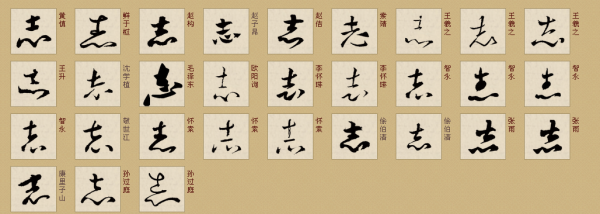 志 黄慎 志 鲜于枢 志 赵构 志 赵子昂 志 赵佶 志 索靖 志 王羲之 志 王羲之 志 王羲之
志 王升 志 沈学植 志 毛泽东 志 欧阳询 志 李怀琳 志 李怀琳 志 智永 志 智永 志 智永
志 智永 志 敬世江 志 怀素 志 怀素 志 怀素 志 徐伯清 志 徐伯清 志 张雨 志 张雨
志 康里子山 志 孙过庭 志 孙过庭